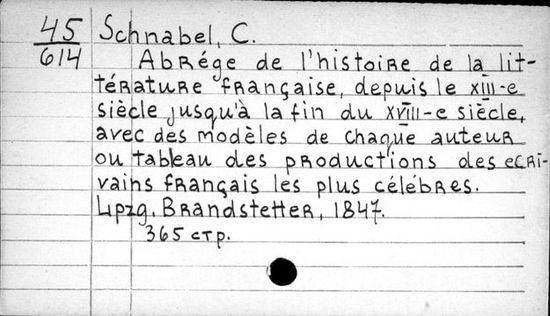 45 Schnabel, C.
614 Abrége de l'histoire de la lit-
térature française, depuis le XIII-e
siècle jusqu'à la fin du XVIII-e siècle,
avec des modèles de chaque auteur
ou tableau des productions des ecri-
vains français les plus célébres.
Lpzg. Brandstetter, 1847.
365 стр.